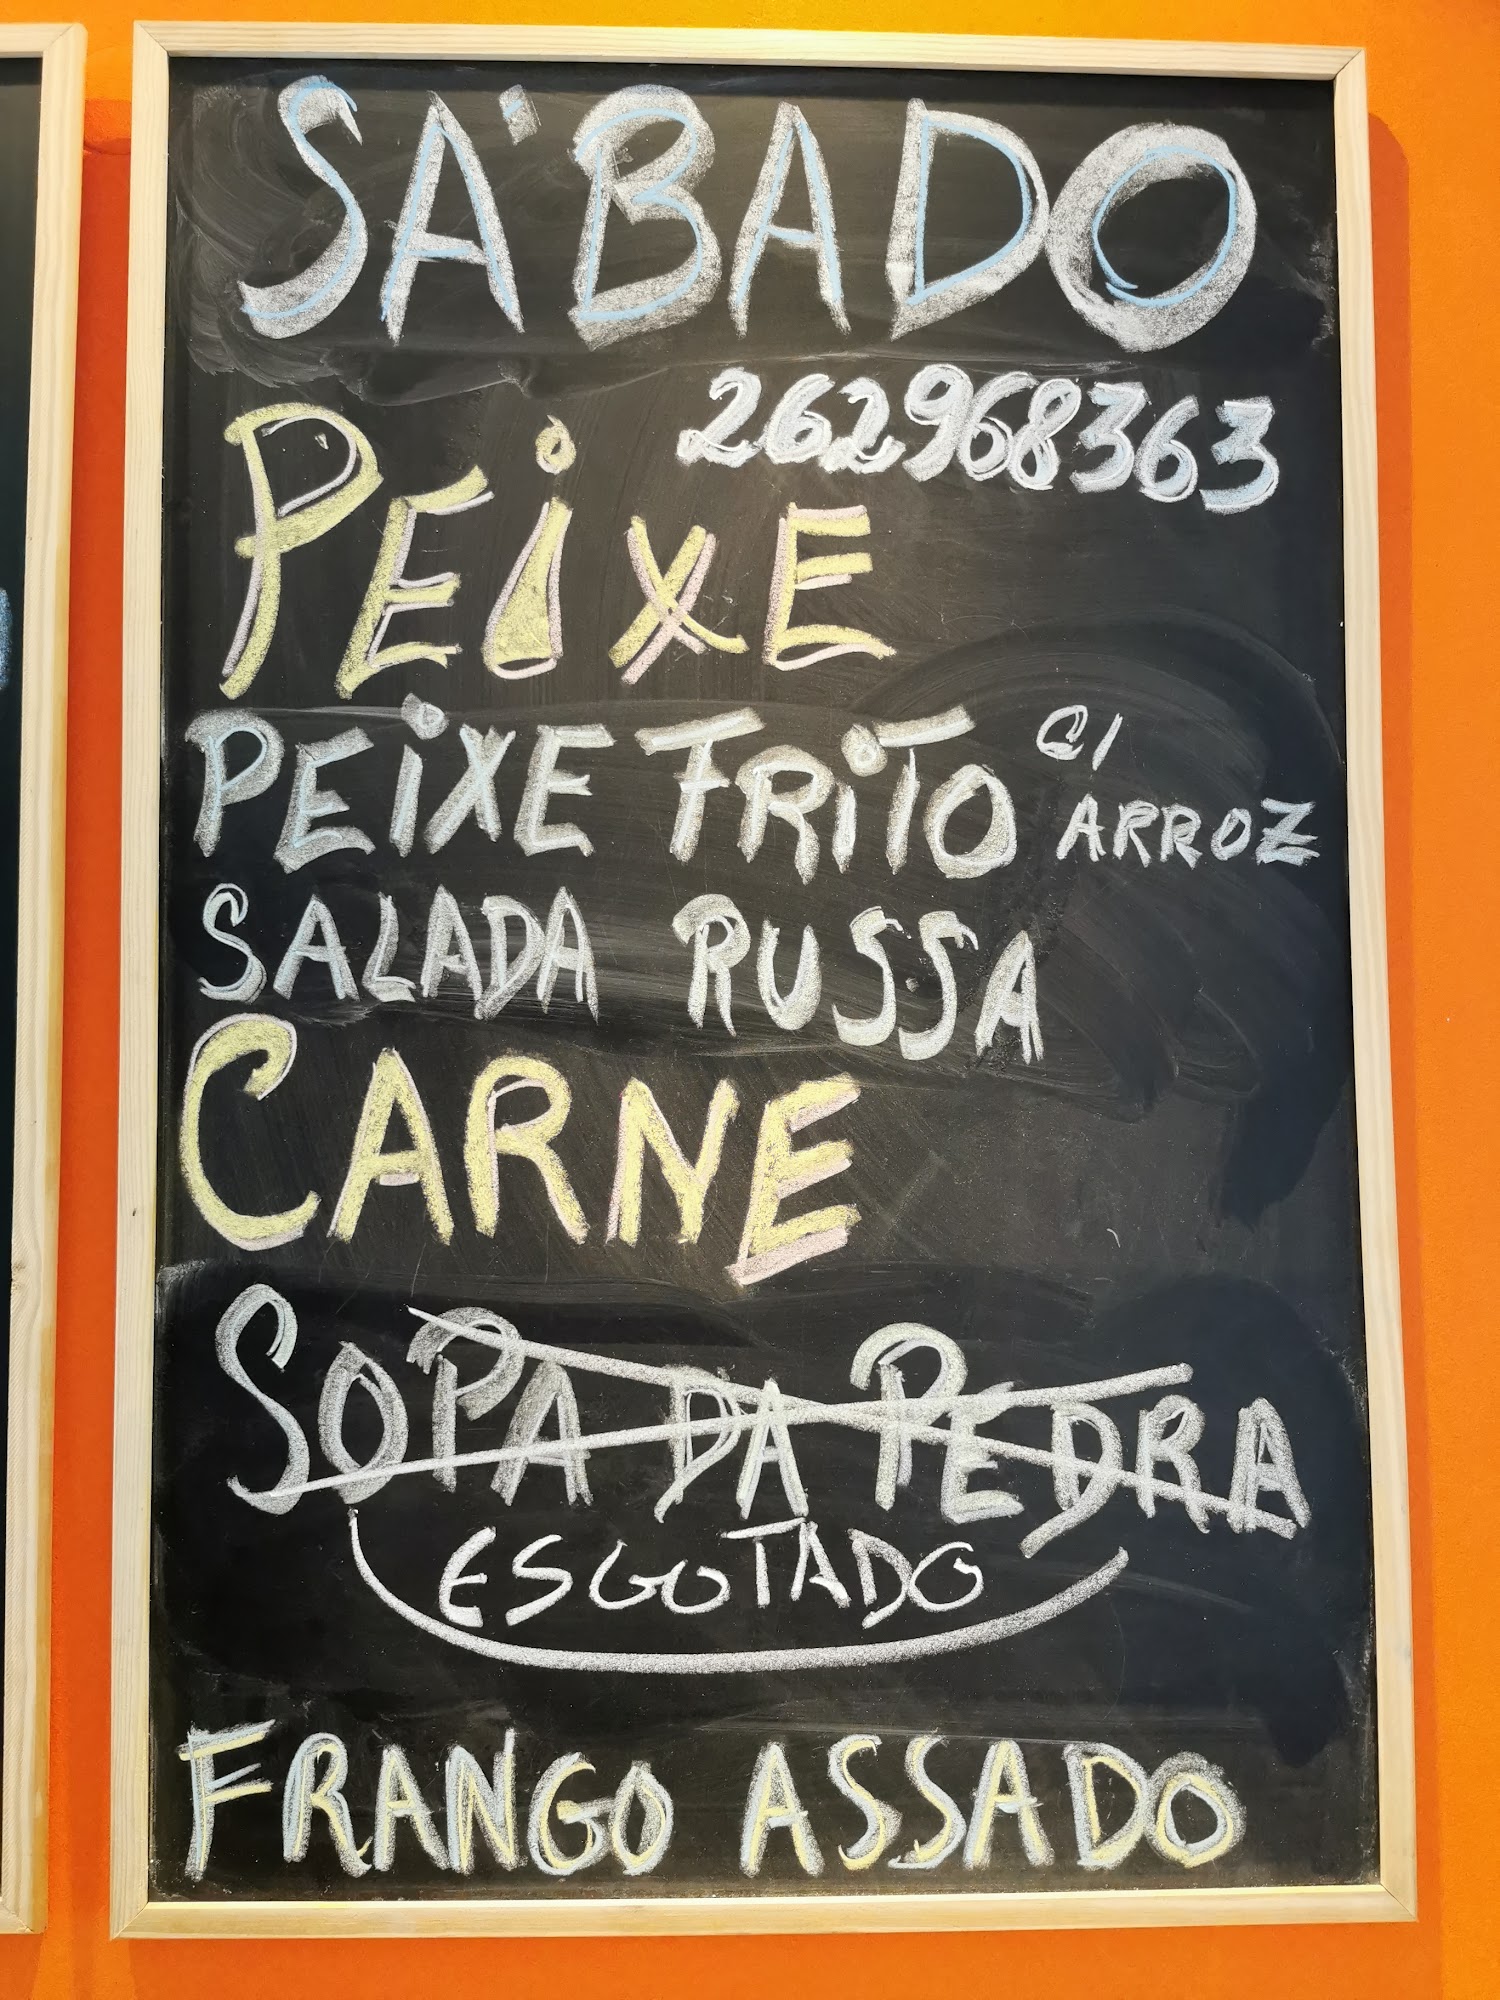 SÁBADO
262968363
PEiXE
PEiXE FRiTO C/
ARROZ
SALADA RUSSA
CARNE
SOPA DA PEDRA
ESGOTADO
FRANGO ASSADO